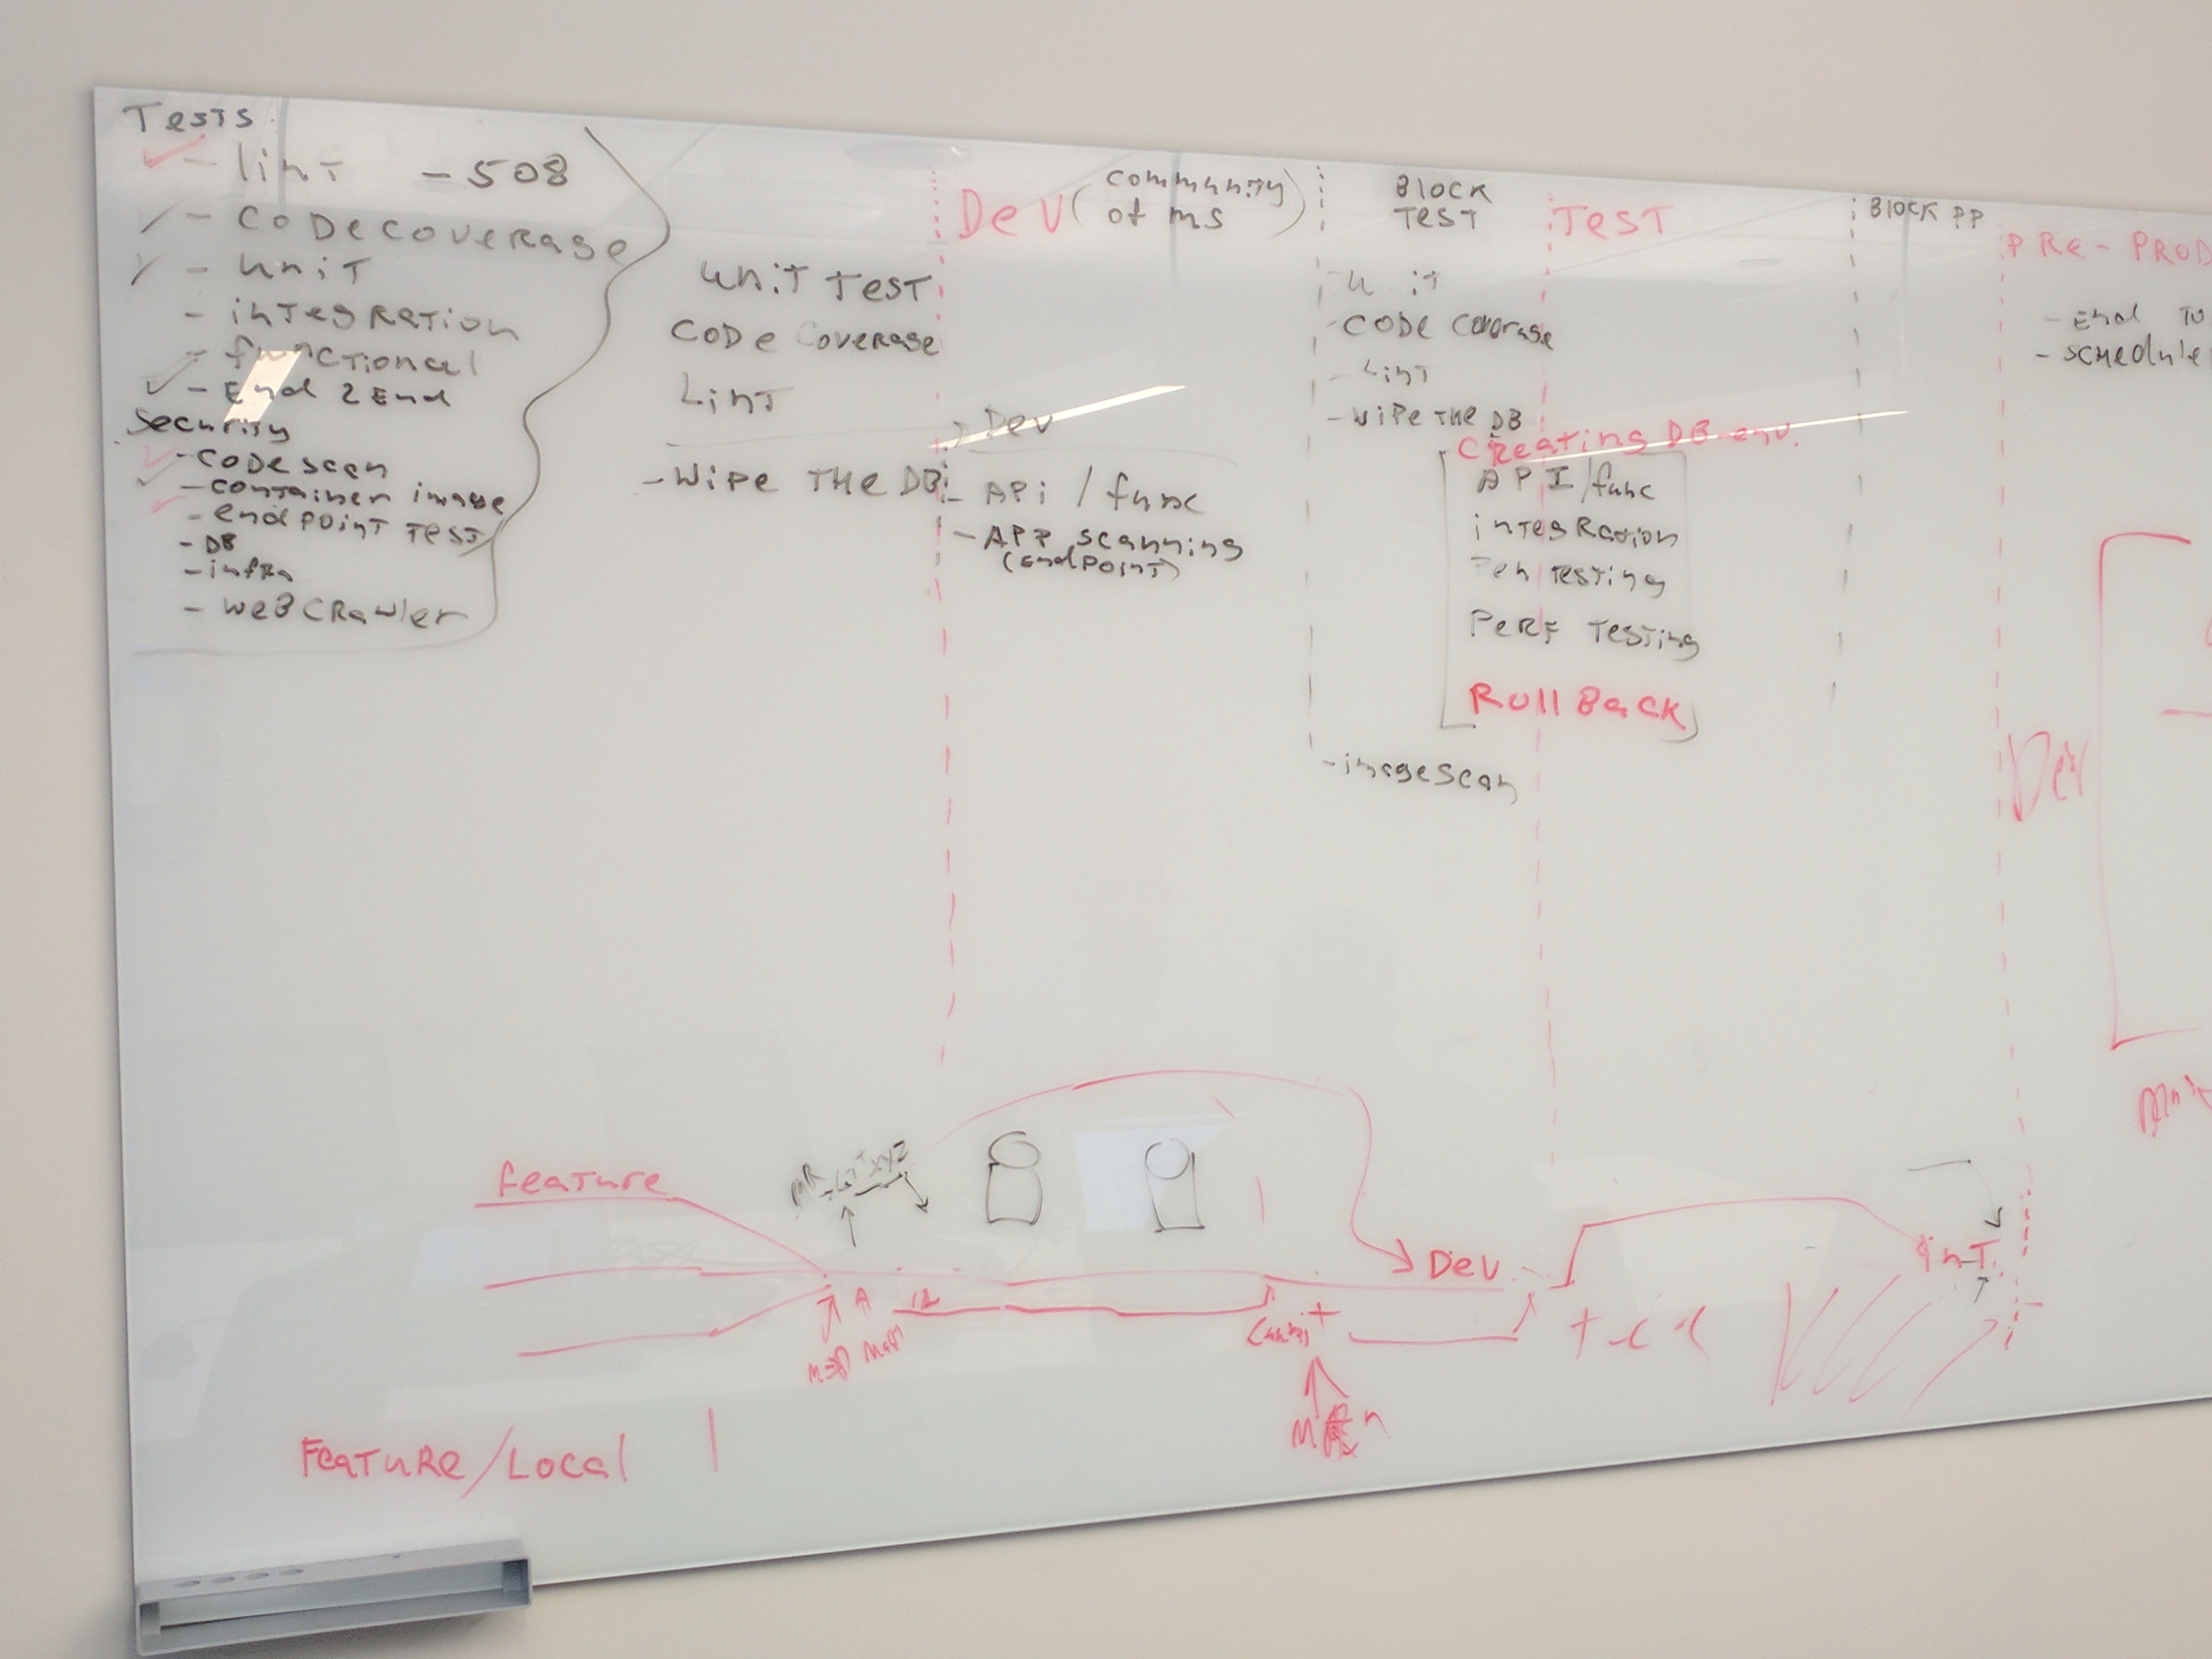 Tests
- lint - 508
- CODe coverage
- unit
- integration
- functional
- End 2 End
Security
- CODe scan
- container image
- endpoint Test
- DB
- infra
- WeB CRawler
unit Test
CODe Coverage
Lint
- Wipe The DB
Dev (community of ms)
Dev
- APi / func
- APP scanning
(EndPoint)
BLOCK
TEST
unit
- CODe Coverage
- Lint
- Wipe The DB
TesT
Creating DB env.
API/func
integRation
Pen Testing
PeRF Testing
Roll Back
- image scan
BLOCK PP
PRe-PROD
- End To
- Schedule
Dev
feature
MR
xyz
Dev
int
FeatuRe/Local